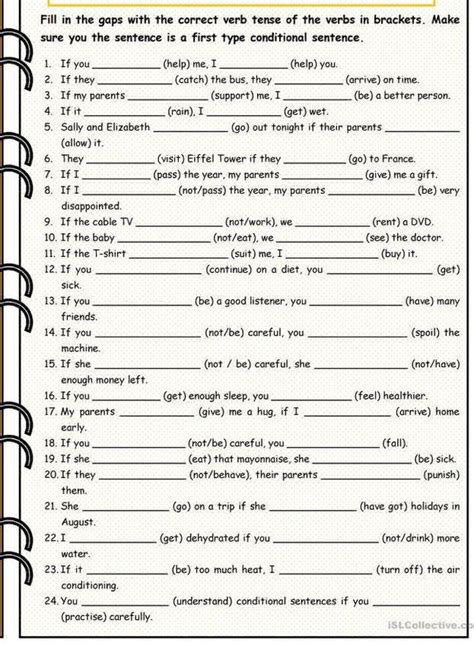 Fill in the gaps with the correct verb tense of the verbs in brackets. Make
sure you the sentence is a first type conditional sentence.
1. If you __________ (help) me, I __________ (help) you.
2. If they __________ (catch) the bus, they __________ (arrive) on time.
3. If my parents __________ (support) me, I __________ (be) a better person.
4. If it __________ (rain), I __________ (get) wet.
5. Sally and Elizabeth __________ (go) out tonight if their parents __________
(allow) it.
6. They __________ (visit) Eiffel Tower if they __________ (go) to France.
7. If I __________ (pass) the year, my parents __________ (give) me a gift.
8. If I __________ (not/pass) the year, my parents __________ (be) very
disappointed.
9. If the cable TV __________ (not/work), we __________ (rent) a DVD.
10. If the baby __________ (not/eat), we __________ (see) the doctor.
11. If the T-shirt __________ (suit) me, I __________ (buy) it.
12. If you __________ (continue) on a diet, you __________ (get)
sick.
13. If you __________ (be) a good listener, you __________ (have) many
friends.
14. If you __________ (not/be) careful, you __________ (spoil) the
machine.
15. If she __________ (not / be) careful, she __________ (not/have)
enough money left.
16. If you __________ (get) enough sleep, you __________ (feel) healthier.
17. My parents __________ (give) me a hug, if I __________ (arrive) home
early.
18. If you __________ (not/be) careful, you __________ (fall).
19. If she __________ (eat) that mayonnaise, she __________ (be) sick.
20. If they __________ (not/behave), their parents __________ (punish)
them.
21. She __________ (go) on a trip if she __________ (have got) holidays in
August.
22. I __________ (get) dehydrated if you __________ (not/drink) more
water.
23. If it __________ (be) too much heat, I __________ (turn off) the air
conditioning.
24. You __________ (understand) conditional sentences if you __________
(practise) carefully.
iSLCollective.co